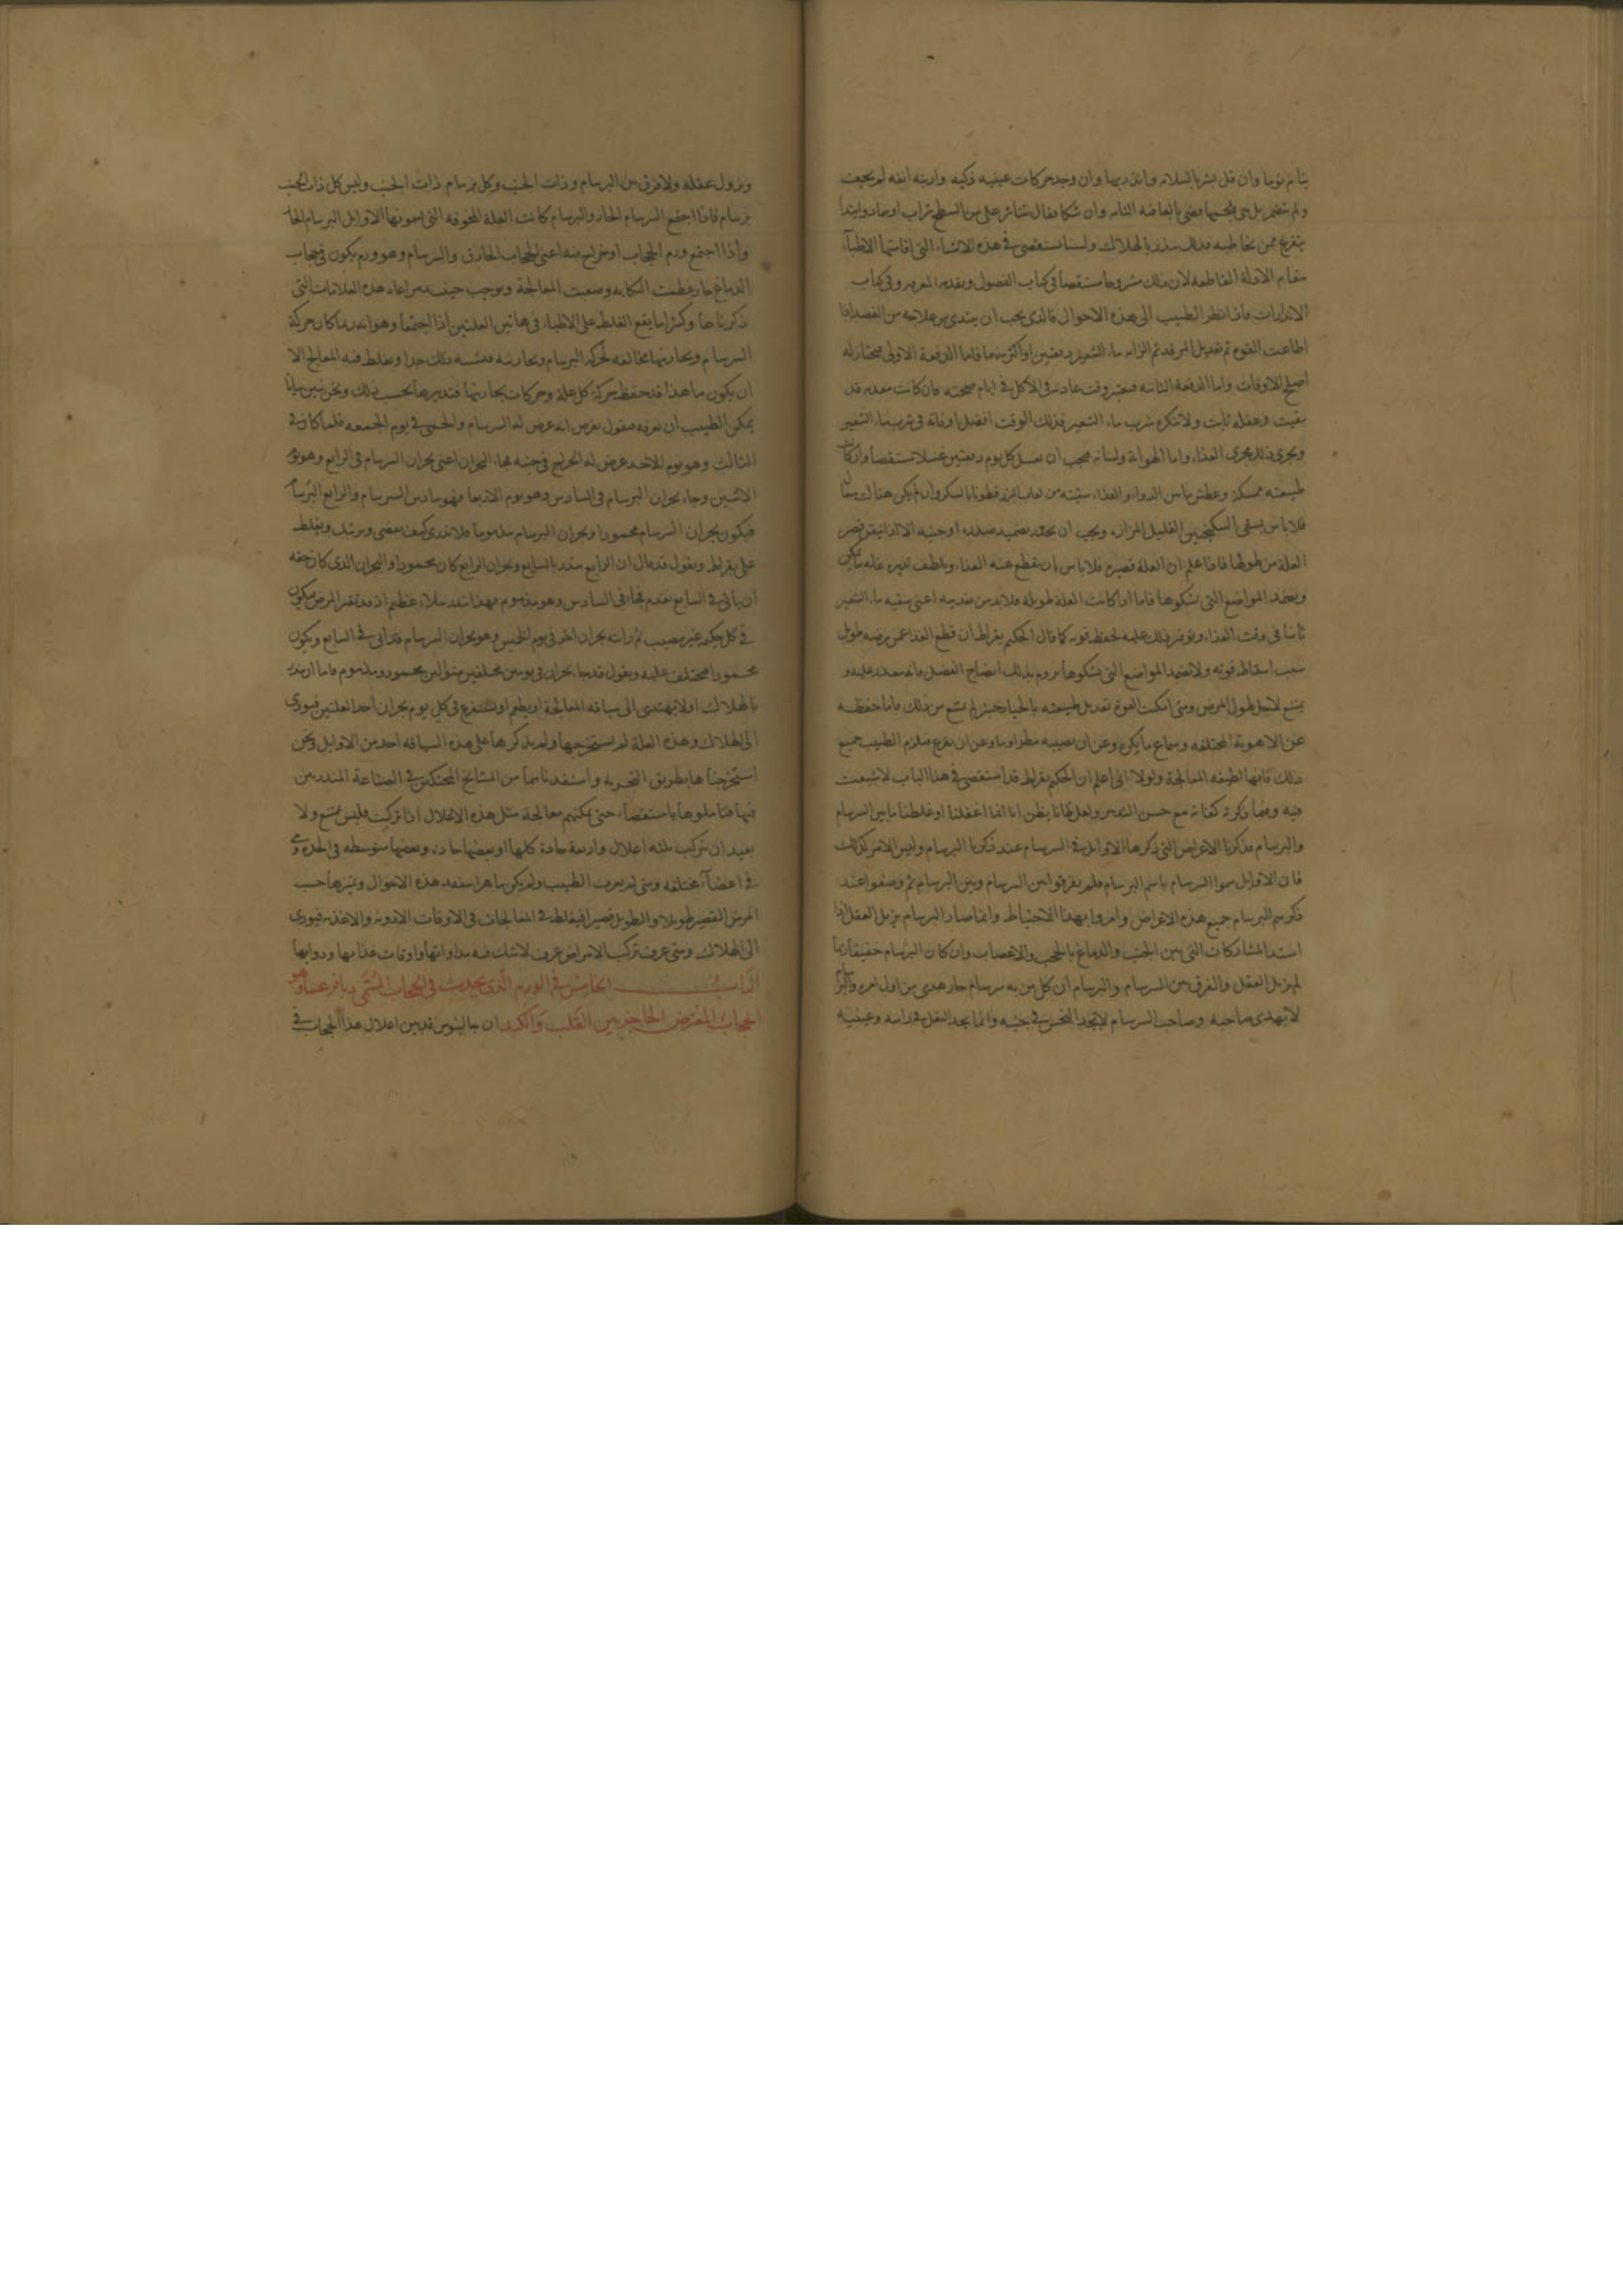 ينام نوما وان قل بشر بالسلامة وانذر بها وان وجد حركات عينيه ذكيه وارنبه انفه لم يحيف
ولم تضمر بل هى بلحمها وان شكا فقال تناثر على من السطح تراب او رماد وابتدا
يتفزع ممن يخاطبه فذلك ينذر بالهلاك ولسنا نستقصى فى هذه الاشياء التى اقامتها الاطباء
مقام الادلة القاطعه لان ذلك مشروحا مستقصا فى كتاب الفصول وتقدمه المعرفه وفى كتاب
الانذارات فاذا نظر الطبيب الى هذه الاحوال فالذى يجب ان يبتدى من علاجه من الفصد اذا
اطاعت القوه ثم تعديل المرقد ثم الزامه ماء الشعير دفعتين او اكثر منهما فاما الدفعة الاولى فيختار له
اصلح الاوقات واما الدفعة الثانيه فيعتبر وقت عادته فى الاكل فى ايام صحته فان كانت معدته قد
بقيت وعقله ثابت ولا تنكره شرب ماء الشعير فذلك الوقت افضل اوقاته فى شرب ماء الشعير
ويجرى ذلك مجرى الغذاء واما لهواته ولسانه فيجب ان تغسل كل يوم دفعتين غسلا مستقصا وان كانت
طبيعته ممسكة وعطش ما بين الدواء والغذاء سقيته من لعاب البزر قطونا بالسكر وان لم يكن هناك سعال
فلا باس بسقى السكنجبين القليل المزازه ويجب ان يحذر تضميد صدره او جنبه الا اذا تيقن قصر
العلة من طولها فاذا علم ان العلة قصيره فلا باس بان يقطع عنه الغذاء ويلطف تدبيره غاية ما يمكن
ويضمد المواضع التى يشكوها فاما اذا كانت العلة طويلة فلا بد من تقدمه اعنى سقيه ماء الشعير
ثانيا فى وقت الغذاء ويوفر ذلك عليه لحفظ قوته كما قال الحكيم بقراط ان قطع الغذا عمن مرضه طويل
سبب اسقاط قوته ولا تضمد المواضع التى يشكوها تروم بذلك انضاج الفضل فانه
يمتنع لاجل طول المرض ومتى امكنت القوة تعديل طبيعته بالخيار شنبر لم يمتنع من ذلك فاما حفظه
عن الاهوية المختلفه وسماع ما يكره وعن ان يصيبه مطر او ما وعن ان يفزع فيلزم الطبيب جميع
ذلك فانها لطيفه المعالجة ولولا انى اعلم ان الحكيم بقراط قد استقصى فى هذا الباب لاشبعت
فيه وفيما ذكرته كفاية مع حسن التدبير ولعل ظانا يظن انا انما اغفلنا او غلطنا ما بين السرسام
والبرسام فذكرنا الاعراض التى ذكروها الاوايل فى السرسام عند ذكرنا البرسام وليس الامر كذلك
فان الاوايل سموا السرسام باسم البرسام فلم يفرقوا بين السرسام وبين البرسام ثم وصفوا عند
ذكرهم البرسام جميع هذه الاعراض وامروا بهذا الاحتياط وانما صار البرسام يزيل العقل اذا
اشتد المشاركات التى بين الجنب والدماغ بالحجب والاعصاب وان كان البرسام خفيفا ربما
لم يزيل العقل والفرق بين السرسام والبرسام ان كل من به سرسام حار هدى من اول امره والبرسام
لا يهدى صاحبه وصاحب السرسام لا يجد النخس فى جنبه وانما يجد الثقل فى راسه وعينيه
ويزول عقله ولا فرق بين البرسام وذات الجنب وكل برسام ذات الجنب وليس كل ذات الجنب
برسام فاذا اجتمع السرسام الحار والبرسام كانت العلة المخوفه التى يسمونها الاوايل البرسام الحار
واذا اجتمع ورم الحجاب او خراج فيه اعنى الحجاب الخارق والسرسام وهو ورم يكون فى حجاب
الدماغ حار عظمت النكايه وصعبت المعالجة ويوجب حينئذ مراعاه هذه العلامات التى
ذكرناها وكثيرا ما يقع الغلط على الاطباء فى هاتين العلتين اذا اجتمعا وهو انه ربما كان حركة
السرسام وبحارينها مخالفه لحركة البرسام وبحارينه فيشتبه ذلك جدا ويغلط فيه المعالج الا
ان يكون ماهرا قد حفظ حركة كل علة وحركات بحارينها فتدبيرها بحسب ذلك ونحن نبين بيانا
يمكن الطبيب ان يعرفه فنقول نفرض انه عرض له السرسام والحمى فى يوم الجمعه فلما كان فى
الثالث وهو يوم الاحد عرض له الخراج فى جنبه فجاء البحران اعنى بحران السرسام فى الرابع وهو يوم
الاثنين وجاء بحران البرسام فى السادس وهو يوم الاربعا فهو سادس السرسام والرابع البرسام
فيكون بحران السرسام محمودا وبحران البرسام مذموما فلا تدرى كيف تقضى ويرتبك ويغلط
على بقراط ويقول قد قال ان الرابع ينذر بالسابع وبحران الرابع كان محمودا والبحران الذى كان حقه
ان ياتى فى السابع تقدم فجاء فى السادس وهو مذموم فهذا ينذر ببلاء عظيم اذ قد تغير المرض فيكون
فى كل حكمه غير مصيب ثم راته بحران اخر فى يوم الخميس وهو بحران السرسام قد اتى فى السابع ويكون
محمودا فيختلف عليه ويقول قد جاء بحران فى يومين مختلفين متواليين محمود ومذموم فاما ان ينذر
بالهلاك او لا يهتدى الى سياقه المعالجة او يطعم او يستفرغ فى كل يوم بحران احد العلتين فيودى
الى الهلاك وهذه العلة لم يستخرجها ولم يذكرها على هذه السياقه احد من الاوايل ونحن
استخرجناها بطريق التجربه واستفدناها من المشايخ المحنكين فى الصناعة المتدربين
فيها فتاملوها باستقصاء حتى يمكنهم معالجة مثل هذه الاعلال اذا تركبت فليس يمتنع ولا
بعيد ان تتركب ثلثه اعلال واربعة حادة كلها او بعضها حاده وبعضها متوسطه فى الحده وهى
فى اعضاء مختلفه ومتى لم يعرف الطبيب ولم يكن ماهرا يتفقد هذه الاحوال ويميزها حسب
المرض القصير طويلا والطويل قصيرا فيغلط فى المعالجات فى الاوقات الادويه والاغذيه فيودى
الى الهلاك ومتى عرف تركب الامراض عرف لا شك فيه مداواتها واوقات غذايها ودوايها
الباب الخامس فى الورم الذى يحدث فى الحجاب المسمى ديافرغما وهو
الحجاب المعترض الحاجز بين القلب والكبد ان جالينوس قد بين اعلال هذا الحجاب فى